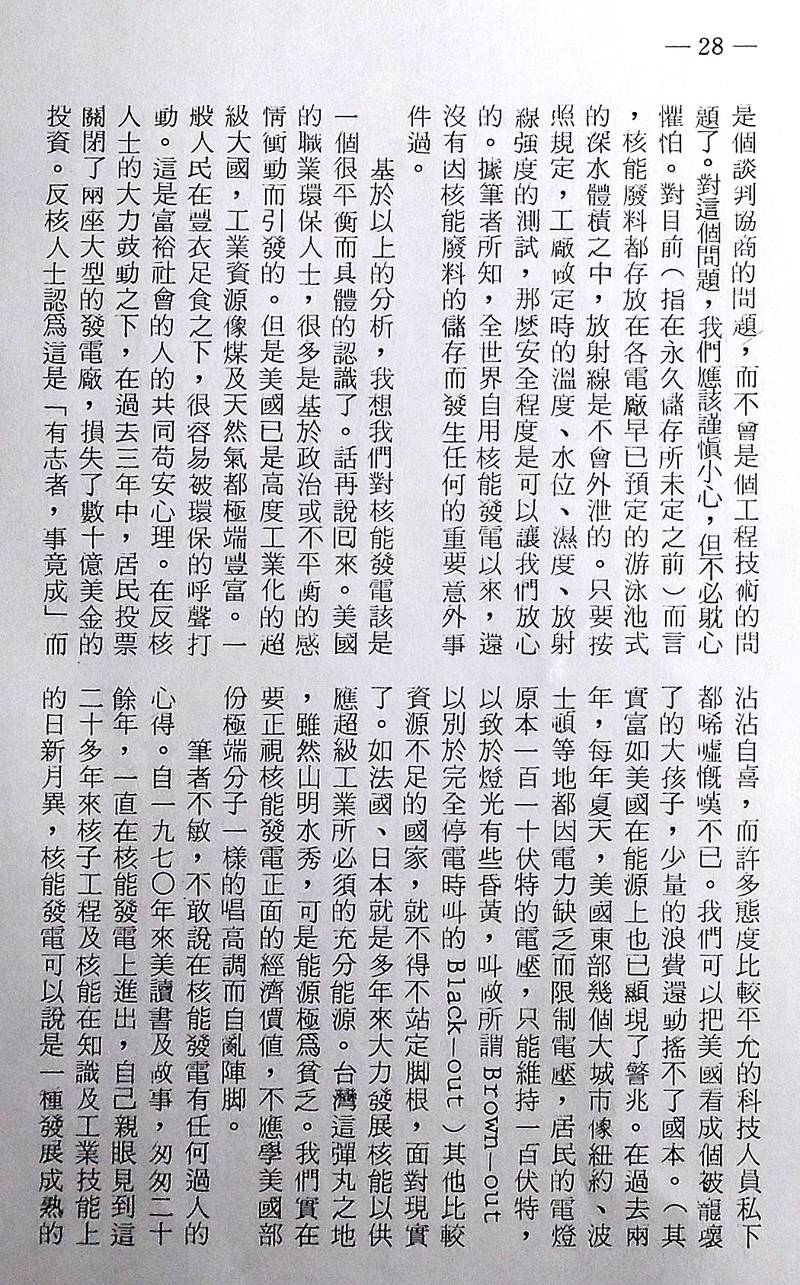 — 28 —
是個談判協商的問題，而不會是個工程技術的問
題了。對這個問題，我們應該謹慎小心，但不必躭心
懼怕。對目前（指在永久儲存所未定之前）而言
，核能廢料都存放在各電廠早已預定的游泳池式
的深水體積之中，放射線是不會外泄的。只要按
照規定，工廠做定時的溫度、水位、濕度、放射
線強度的測試，那麽安全程度是可以讓我們放心
的。據筆者所知，全世界自用核能發電以來，還
沒有因核能廢料的儲存而發生任何的重要意外事
件過。
基於以上的分析，我想我們對核能發電該是
一個很平衡而具體的認識了。話再說回來。美國
的職業環保人士，很多是基於政治或不平衡的感
情衝動而引發的。但是美國已是高度工業化的超
級大國，工業資源像煤及天然氣都極端豐富。一
般人民在豐衣足食之下，很容易被環保的呼聲打
動。這是富裕社會的人的共同苟安心理。在反核
人士的大力鼓動之下，在過去三年中，居民投票
關閉了兩座大型的發電廠，損失了數十億美金的
投資。反核人士認爲這是「有志者，事竟成」而
沾沾自喜，而許多態度比較平允的科技人員私下
都唏噓慨嘆不已。我們可以把美國看成個被寵壞
了的大孩子，少量的浪費還動搖不了國本。（其
實富如美國在能源上也已顯現了警兆。在過去兩
年，每年夏天，美國東部幾個大城市像紐約、波
士頓等地都因電力缺乏而限制電壓，居民的電燈
原本一百一十伏特的電壓，只能維持一百伏特，
以致於燈光有些昏黃，叫做所謂 Brown—out
以別於完全停電時叫的 Black—out ）其他比較
資源不足的國家，就不得不站定脚根，面對現實
了。如法國、日本就是多年來大力發展核能以供
應超級工業所必須的充分能源。台灣這彈丸之地
，雖然山明水秀，可是能源極爲貧乏。我們實在
要正視核能發電正面的經濟價值，不應學美國部
份極端分子一樣的唱高調而自亂陣脚。
筆者不敏，不敢說在核能發電有任何過人的
心得。自一九七〇年來美讀書及做事，匆匆二十
餘年，一直在核能發電上進出，自己親眼見到這
二十多年來核子工程及核能在知識及工業技能上
的日新月異，核能發電可以說是一種發展成熟的